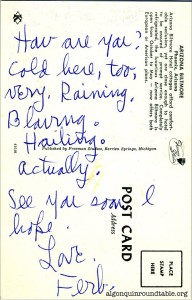 How are you?
Cold here, too,
very. Raining.
Blowing.
Hailing.
Actually.
See you soon, I
hope.
Love,
Ferb.
ARIZONA BILTMORE
Phoenix, Arizona
Published by Freeman Studios, Berrien Springs, Michigan
POST CARD
Address
PLACE
STAMP
HERE
algonquinroundtable.org